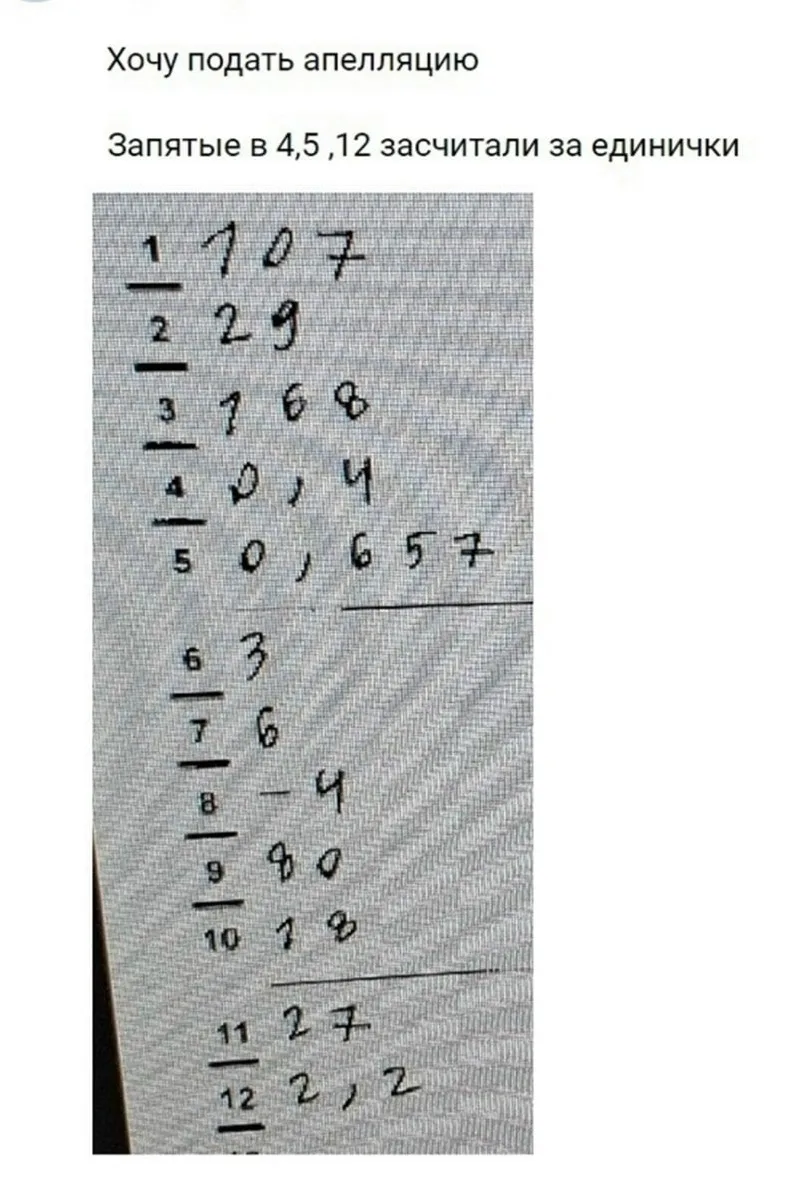 Хочу подать апелляцию
Запятые в 4,5 ,12 засчитали за единички
1 107
2 29
3 168
4 0,4
5 0,657
6 3
7 6
8 -4
9 80
10 18
11 27
12 2,2